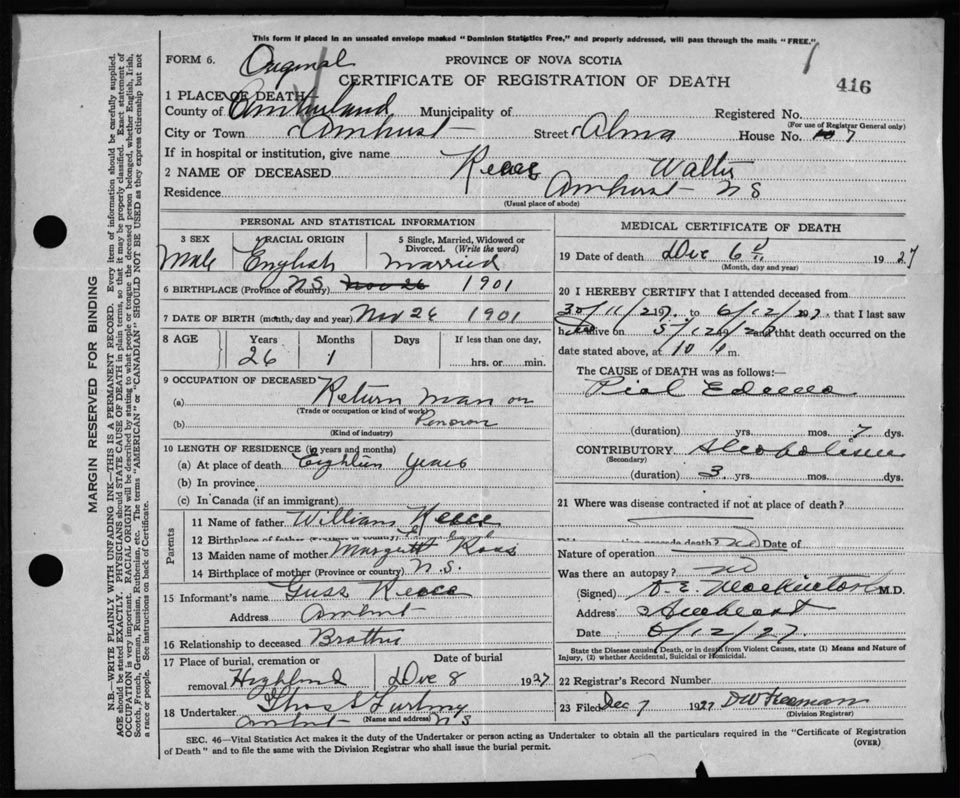 This form if placed in an unsealed envelope masked "Dominion Statistics Free," and properly addressed, will pass through the mails "FREE."
FORM 6.
Original
PROVINCE OF NOVA SCOTIA
CERTIFICATE OF REGISTRATION OF DEATH
416
1 PLACE OF DEATH—
County of Cumberland Municipality of Registered No.
(For use of Registrar General only)
City or Town Amherst Street Alma House No. 7
If in hospital or institution, give name
2 NAME OF DECEASED Reece Walter
Residence Amherst NS
(Usual place of abode)
PERSONAL AND STATISTICAL INFORMATION
3 SEX
Male
4 RACIAL ORIGIN
English
5 Single, Married, Widowed or Divorced. (Write the word)
Married
6 BIRTHPLACE (Province or country) NS Nov 26 1901
7 DATE OF BIRTH (month, day and year) Nov 26 1901
8 AGE Years Months Days If less than one day,
26 1 hrs. or min.
9 OCCUPATION OF DECEASED
(a) Return man on
(Trade or occupation or kind of work)
(b)
(Kind of industry)
10 LENGTH OF RESIDENCE (in years and months)
(a) At place of death Eighteen Years
(b) In province
(c) In Canada (if an immigrant)
Parents
11 Name of father William Reece
12 Birthplace of father (Province or country)
13 Maiden name of mother Margett Ross
14 Birthplace of mother (Province or country) N.S.
15 Informant's name Guss Reece
Address Amherst
16 Relationship to deceased Brother
17 Place of burial, cremation or removal Highland
Date of burial
Dec 8 1927
18 Undertaker Thos S
(Name and address)
Amherst N S
MEDICAL CERTIFICATE OF DEATH
19 Date of death Dec 6 1927
(Month, day and year)
20 I HEREBY CERTIFY that I attended deceased from
30/11/27, to 6/12/27, that I last saw
h alive on 5/12/27 that death occurred on the
date stated above, at 10 m.
The CAUSE of DEATH was as follows:—
Pial Edema
(duration) yrs. mos. 7 dys.
CONTRIBUTORY Alcoholism
(Secondary)
(duration) 3 yrs. mos. dys.
21 Where was disease contracted if not at place of death?
death? no Date of
Nature of operation
Was there an autopsy? no
(Signed) M.D.
Address Amherst
Date 6/12/27.
State the Disease causing Death, or in death from Violent Causes, state (1) Means and Nature of Injury, (2) whether Accidental, Suicidal or Homicidal.
22 Registrar's Record Number
23 Filed Dec 7 1927 DW Freeman
(Division Registrar)
SEC. 46—Vital Statistics Act makes it the duty of the Undertaker or person acting as Undertaker to obtain all the particulars required in the "Certificate of Registration
of Death" and to file the same with the Division Registrar who shall issue the burial permit.
(OVER)
MARGIN RESERVED FOR BINDING
N.B.—WRITE PLAINLY WITH UNFADING INK—THIS IS A PERMANENT RECORD. Every item of information should be carefully supplied.
AGE should be stated EXACTLY. PHYSICIANS should STATE CAUSE OF DEATH in plain terms, so that it may be properly classified. Exact statement of
OCCUPATION is very important. RACIAL ORIGIN will be described by stating to what people or tongue the deceased person belonged, whether English, Irish,
Scotch, French, German, Russian, Ruthenian, etc. The terms "AMERICAN" or "CANADIAN" SHOULD NOT BE USED as they express citizenship but not
a race or people. See instructions on back of Certificate.